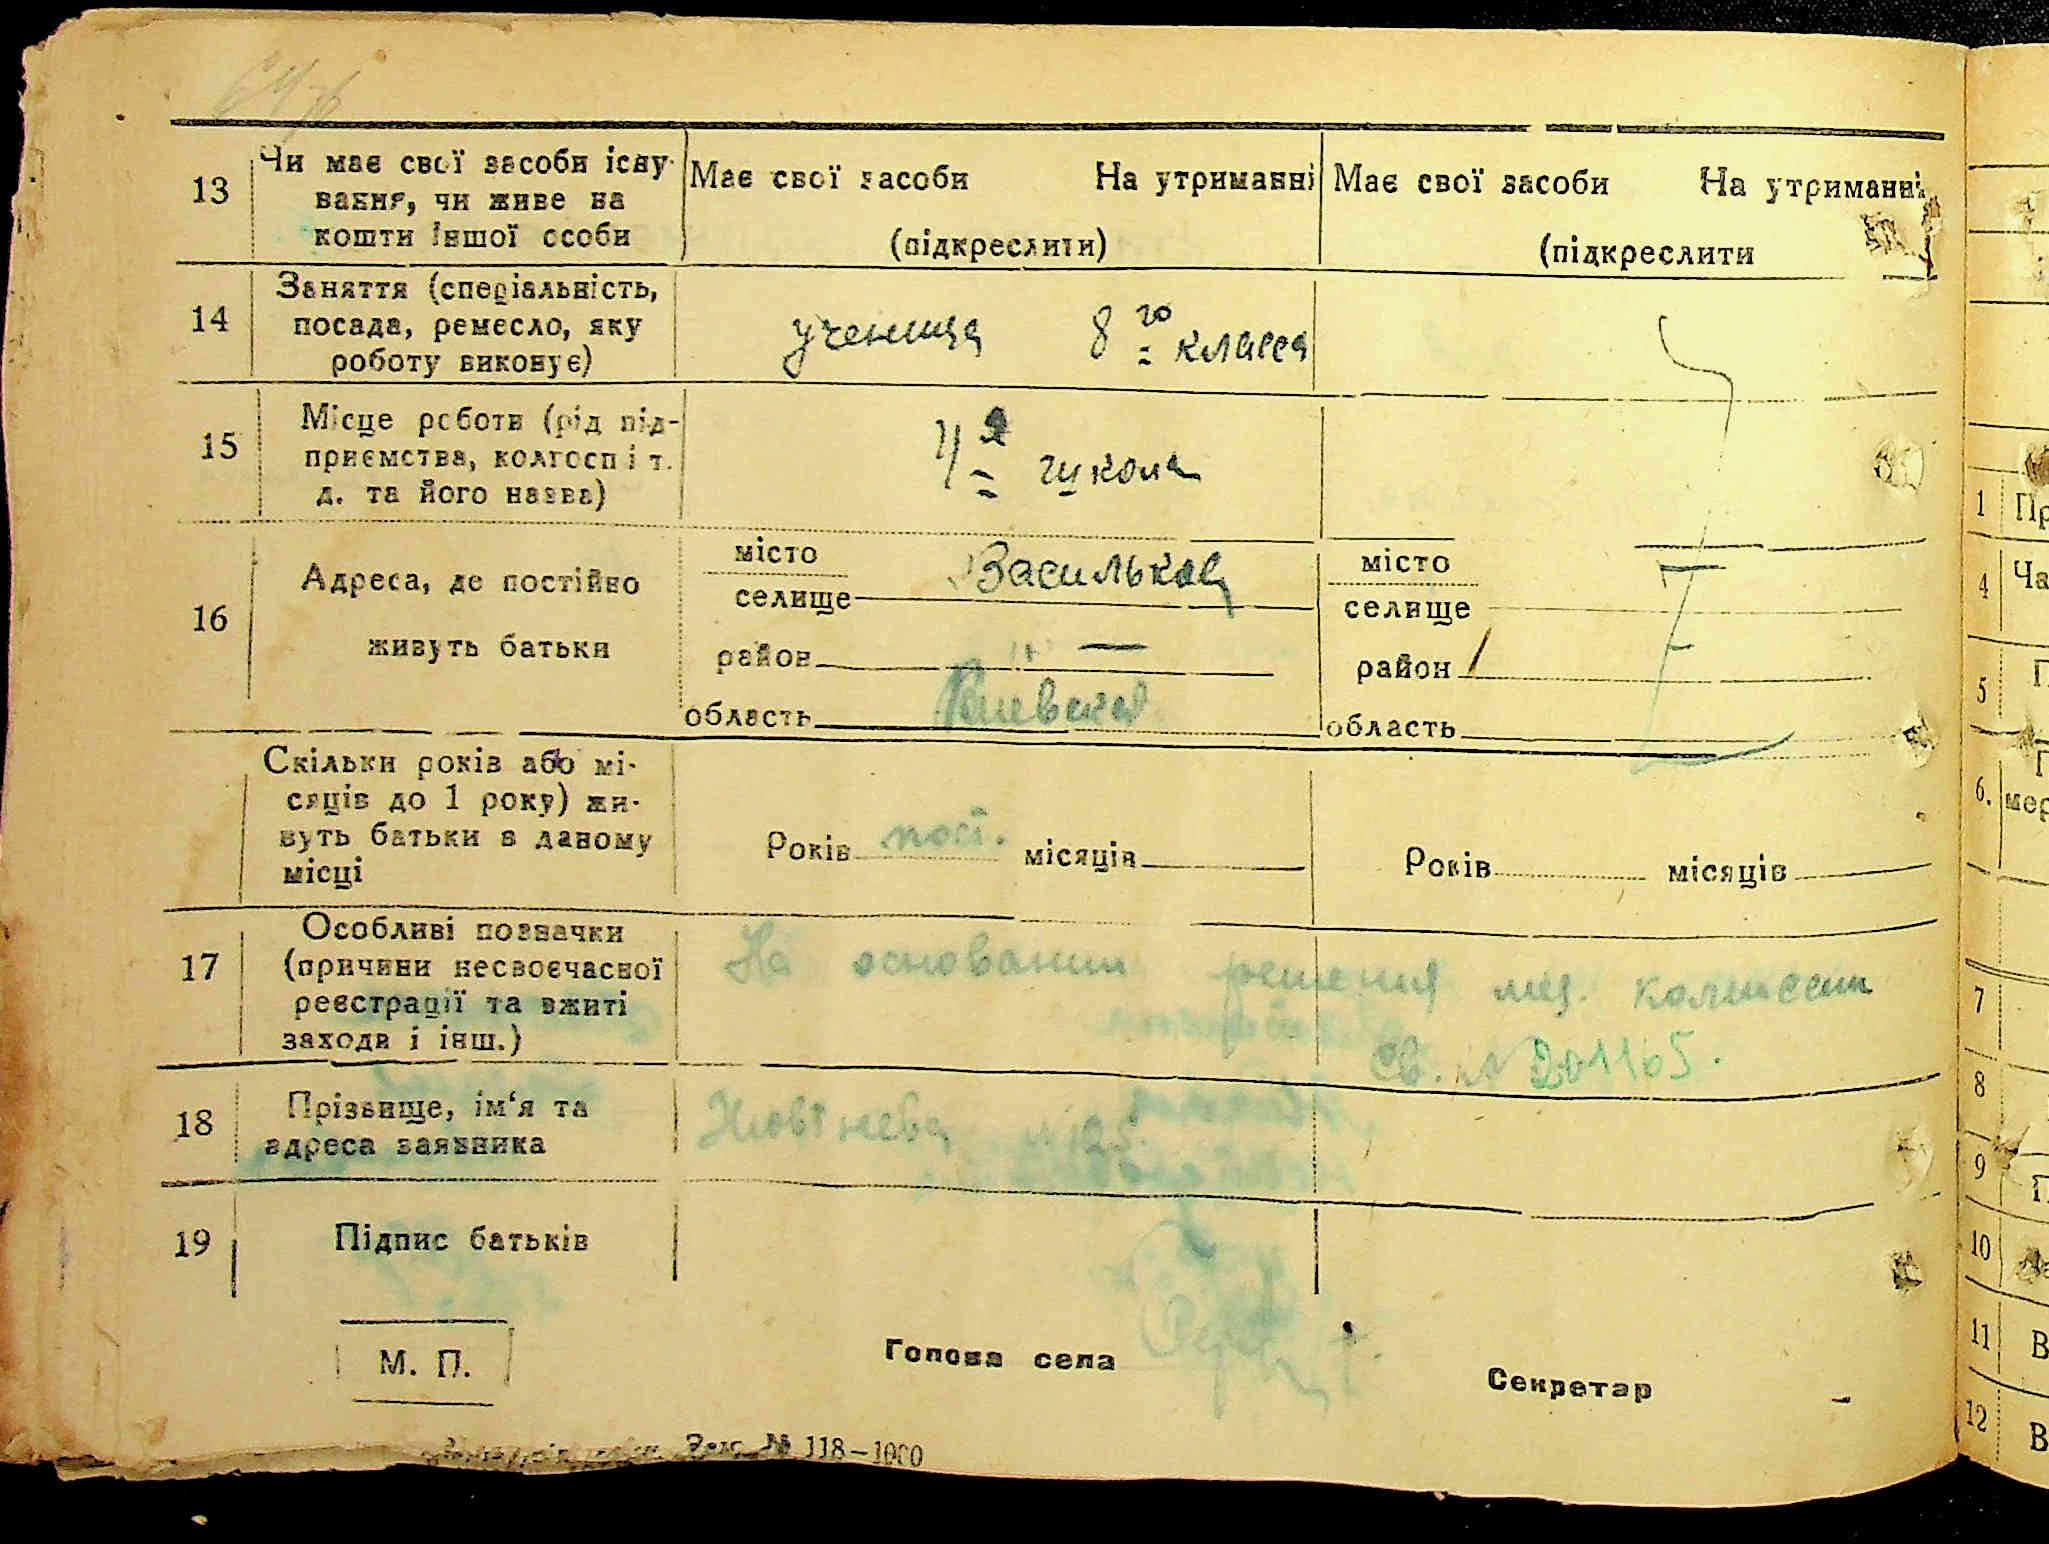 13
Чи має свої засоби існу-
вання, чи живе на
кошти іншої особи
Має свої засоби На утриманні
(підкреслити)
Має свої засоби На утриманні
(підкреслити
14
Заняття (спеціальність,
посада, ремесло, яку
роботу виконує)
ученица 8го класса
15
Місце роботи (рід під-
приємства, колгосп і т.
д. та його назва)
школа
16
Адреса, де постійно
живуть батьки
місто
селище
Васильков
район —
область Киевская
місто
селище
район
область
Скільки років або мі-
сяців до 1 року) жи-
вуть батьки в даному
місці
Років пост. місяців
Років місяців
17
Особливі позначки
(причини несвоєчасної
реєстрації та вжиті
заходи і інш.)
На основании решения мед. комиссии
Св. № 201165.
18
Прізвище, ім‘я та
адреса заявника
Жовтнева № 125.
19
Підпис батьків
М. П.
Голова села
Секретар
Зам. № 118—1000
1 Пр
4 Ча
5 П
6. мер
7
8
9
10
11 В
12 В